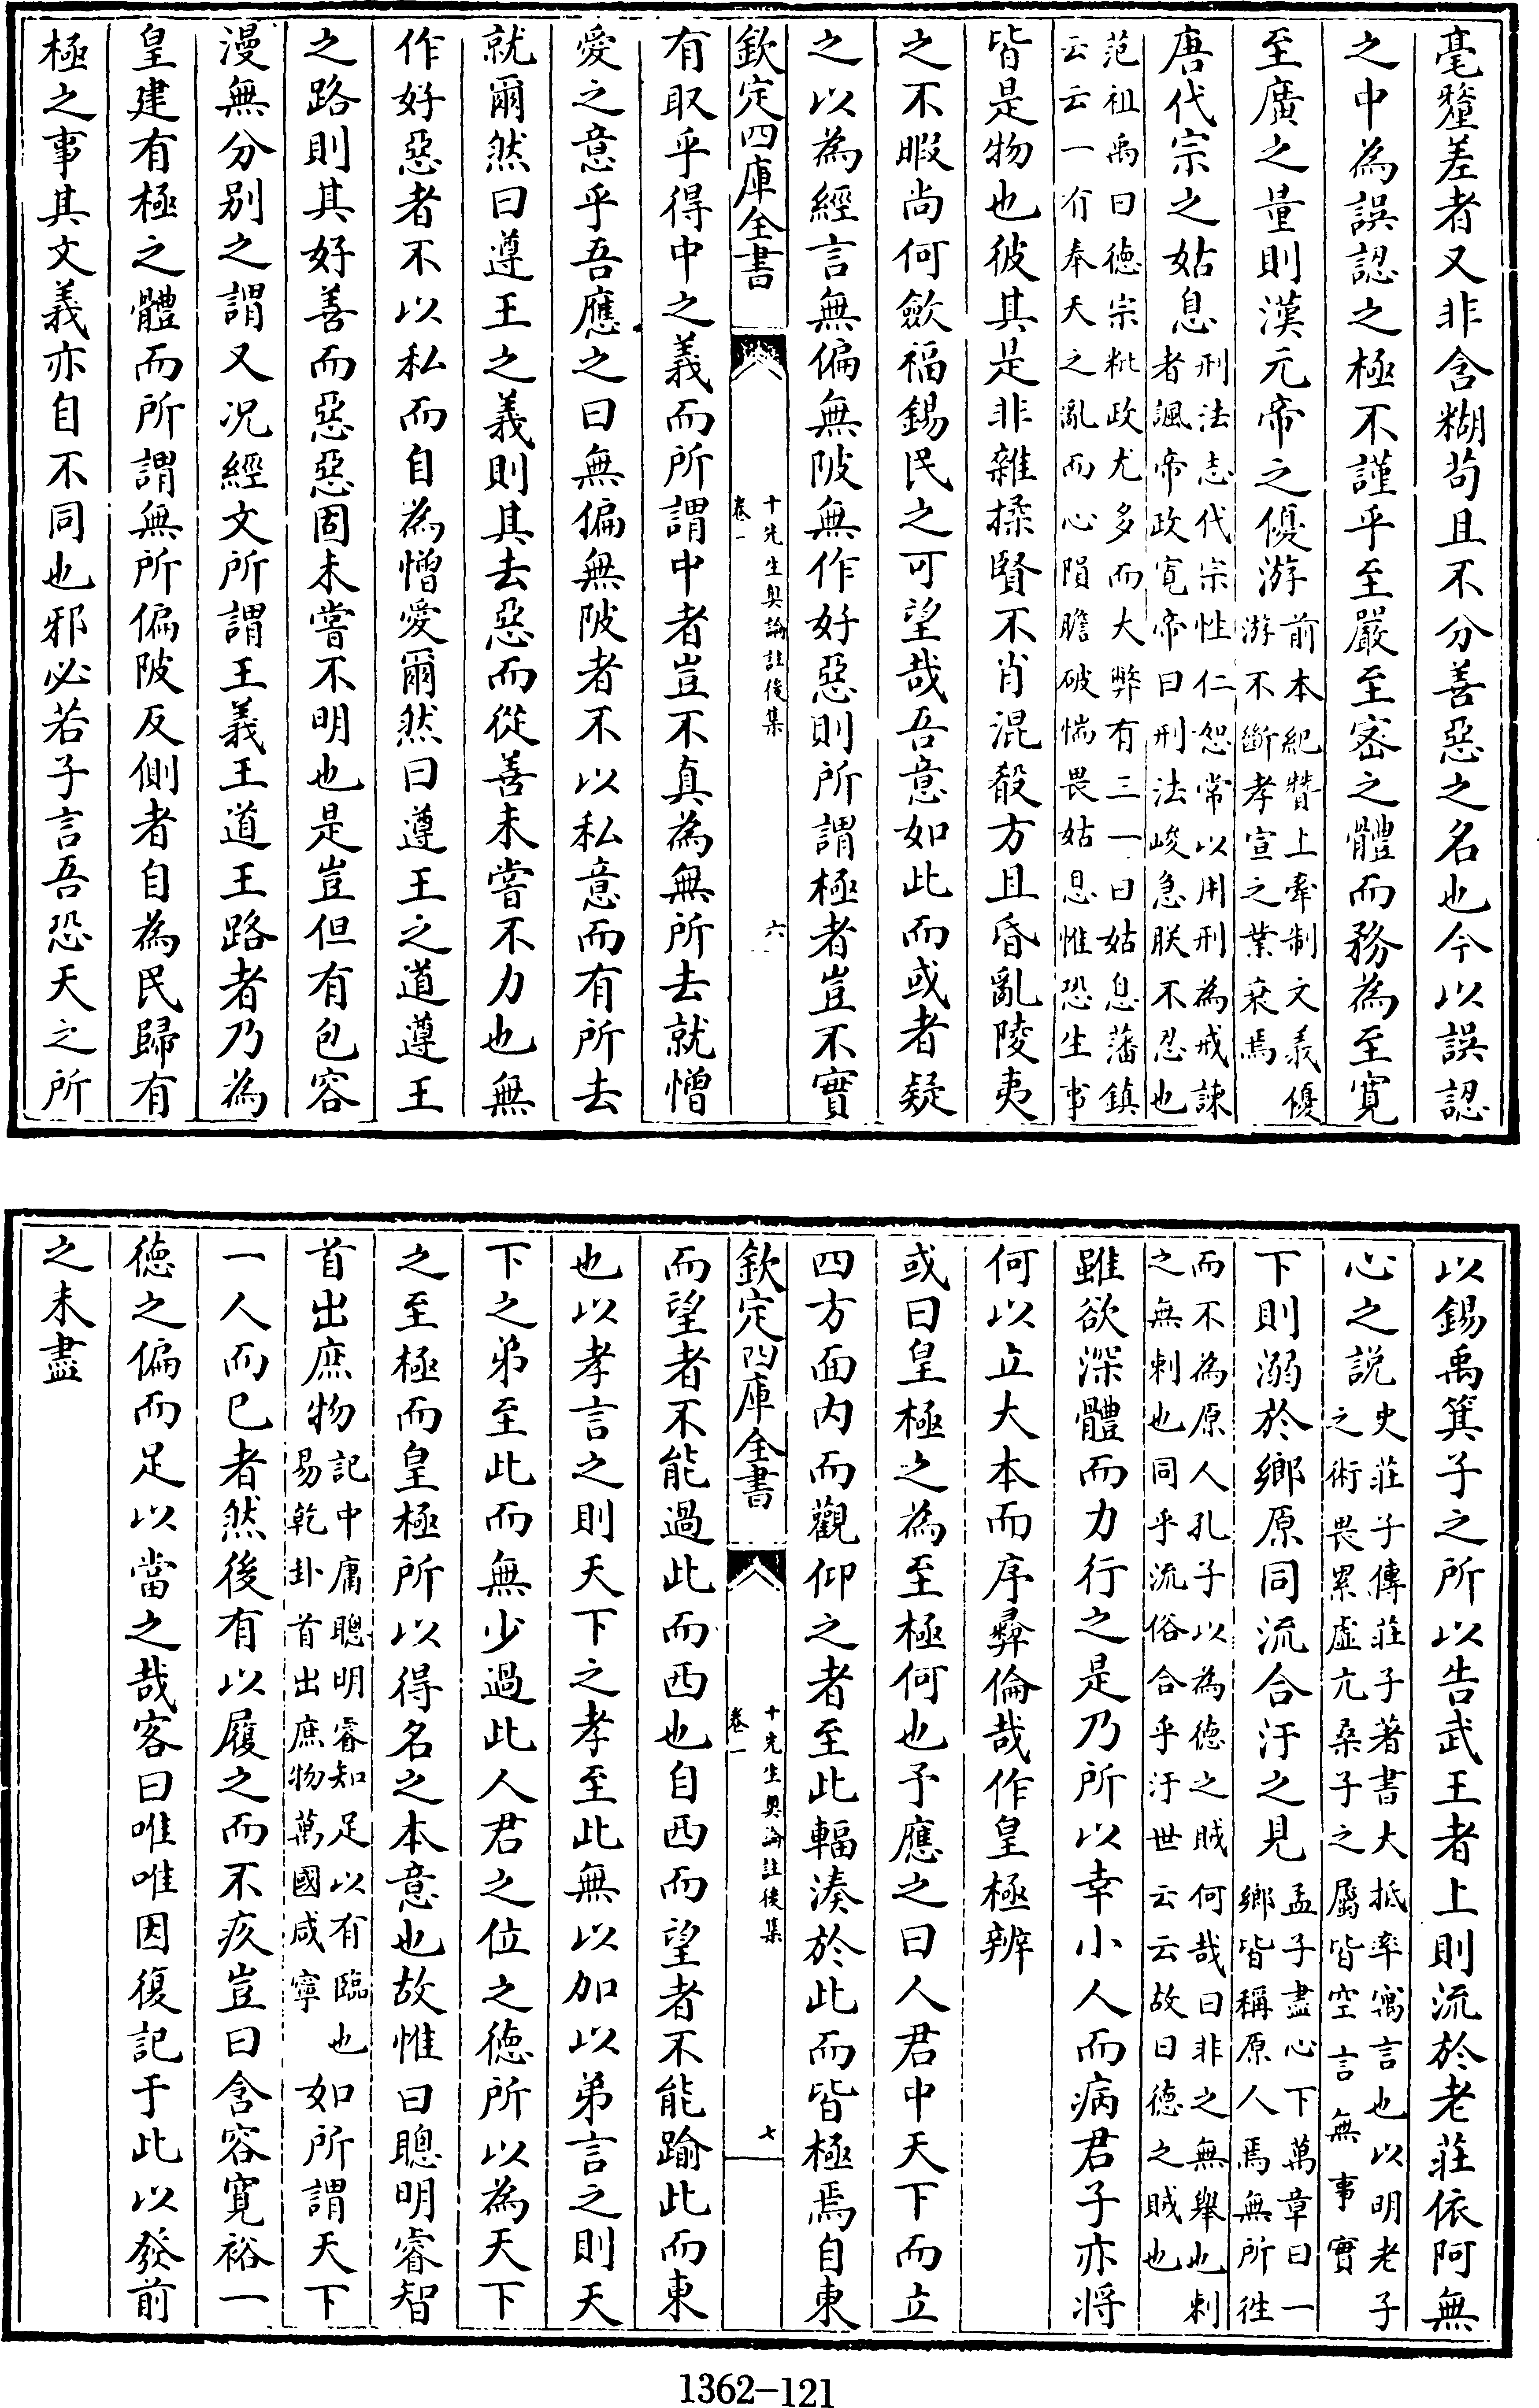 毫釐差者又非含糊茍且不分善惡之名也今以誤認
之中為誤認之極不謹乎至嚴至密之體而務為至寬
至廣之量則漢元帝之優游前本紀贊上牽制文義優
游不斷孝宣之業衰焉
唐代宗之姑息刑法志代宗性仁恕常以用刑為戒諫
者諷帝政寛帝曰刑法峻急朕不忍也
范祖禹曰德宗粃政尤多而大弊有三一曰姑息藩鎮
云云一夼奉天之亂而心隕膽破惴畏姑息惟恐生事
皆是物也彼其是非雜揉賢不肖混殽方且昏亂陵夷
之不暇尚何斂福錫民之可望哉吾意如此而或者疑
之以為經言無偏無陂無作好惡則所謂極者豈不實
欽定四庫全書
十先生奥論註後集
卷一
六
有取乎得中之義而所謂中者豈不真為無所去就憎
愛之意乎吾應之曰無偏無陂者不以私意而有所去
就爾然曰遵王之義則其去惡而從善未嘗不力也無
作好惡者不以私而自為憎愛爾然曰遵王之道遵王
之路則其好善而惡惡固未嘗不明也是豈但有包容
漫無分别之謂又况經文所謂王義王道王路者乃為
皇建有極之體而所謂無所偏陂反側者自為民歸有
極之事其文義亦自不同也邪必若子言吾恐天之所
以錫禹箕子之所以告武王者上則流於老莊依阿無
心之説史莊子傳莊子著書大抵率寓言也以明老子
之術畏累虛亢桑子之屬皆空言無事實
下則溺於鄉原同流合汙之見孟子盡心下萬章曰一
鄉皆稱原人焉無所徃
而不為原人孔子以為德之賊何哉曰非之無舉也刺
之無刺也同乎流俗合乎汙世云云故曰德之賊也
雖欲深體而力行之是乃所以幸小人而病君子亦将
何以立大本而序彛倫哉作皇極辨
或曰皇極之為至極何也予應之曰人君中天下而立
四方面内而觀仰之者至此輻湊於此而皆極焉自東
欽定四庫全書
十先生奥論註後集
卷一
七
而望者不能過此而西也自西而望者不能踰此而東
也以孝言之則天下之孝至此無以加以弟言之則天
下之弟至此而無少過此人君之位之德所以為天下
之至極而皇極所以得名之本意也故惟曰聰明睿智
首出庶物記中庸聰明睿知足以有臨也
易乾卦首出庶物萬國咸寧
如所謂天下
一人而已者然後有以履之而不疚豈曰含容寛裕一
德之偏而足以當之哉客曰唯唯因復記于此以發前
之未盡
1362-121